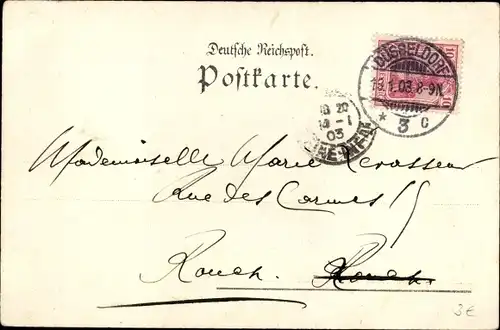 Deutsche Reichspost.
Postkarte.
DÜSSELDORF
13.1.03.8-9N.
* 3 c
10 10
03
Mademoiselle Marie
Rue des Carmes
Rouen. Rouen.
3E